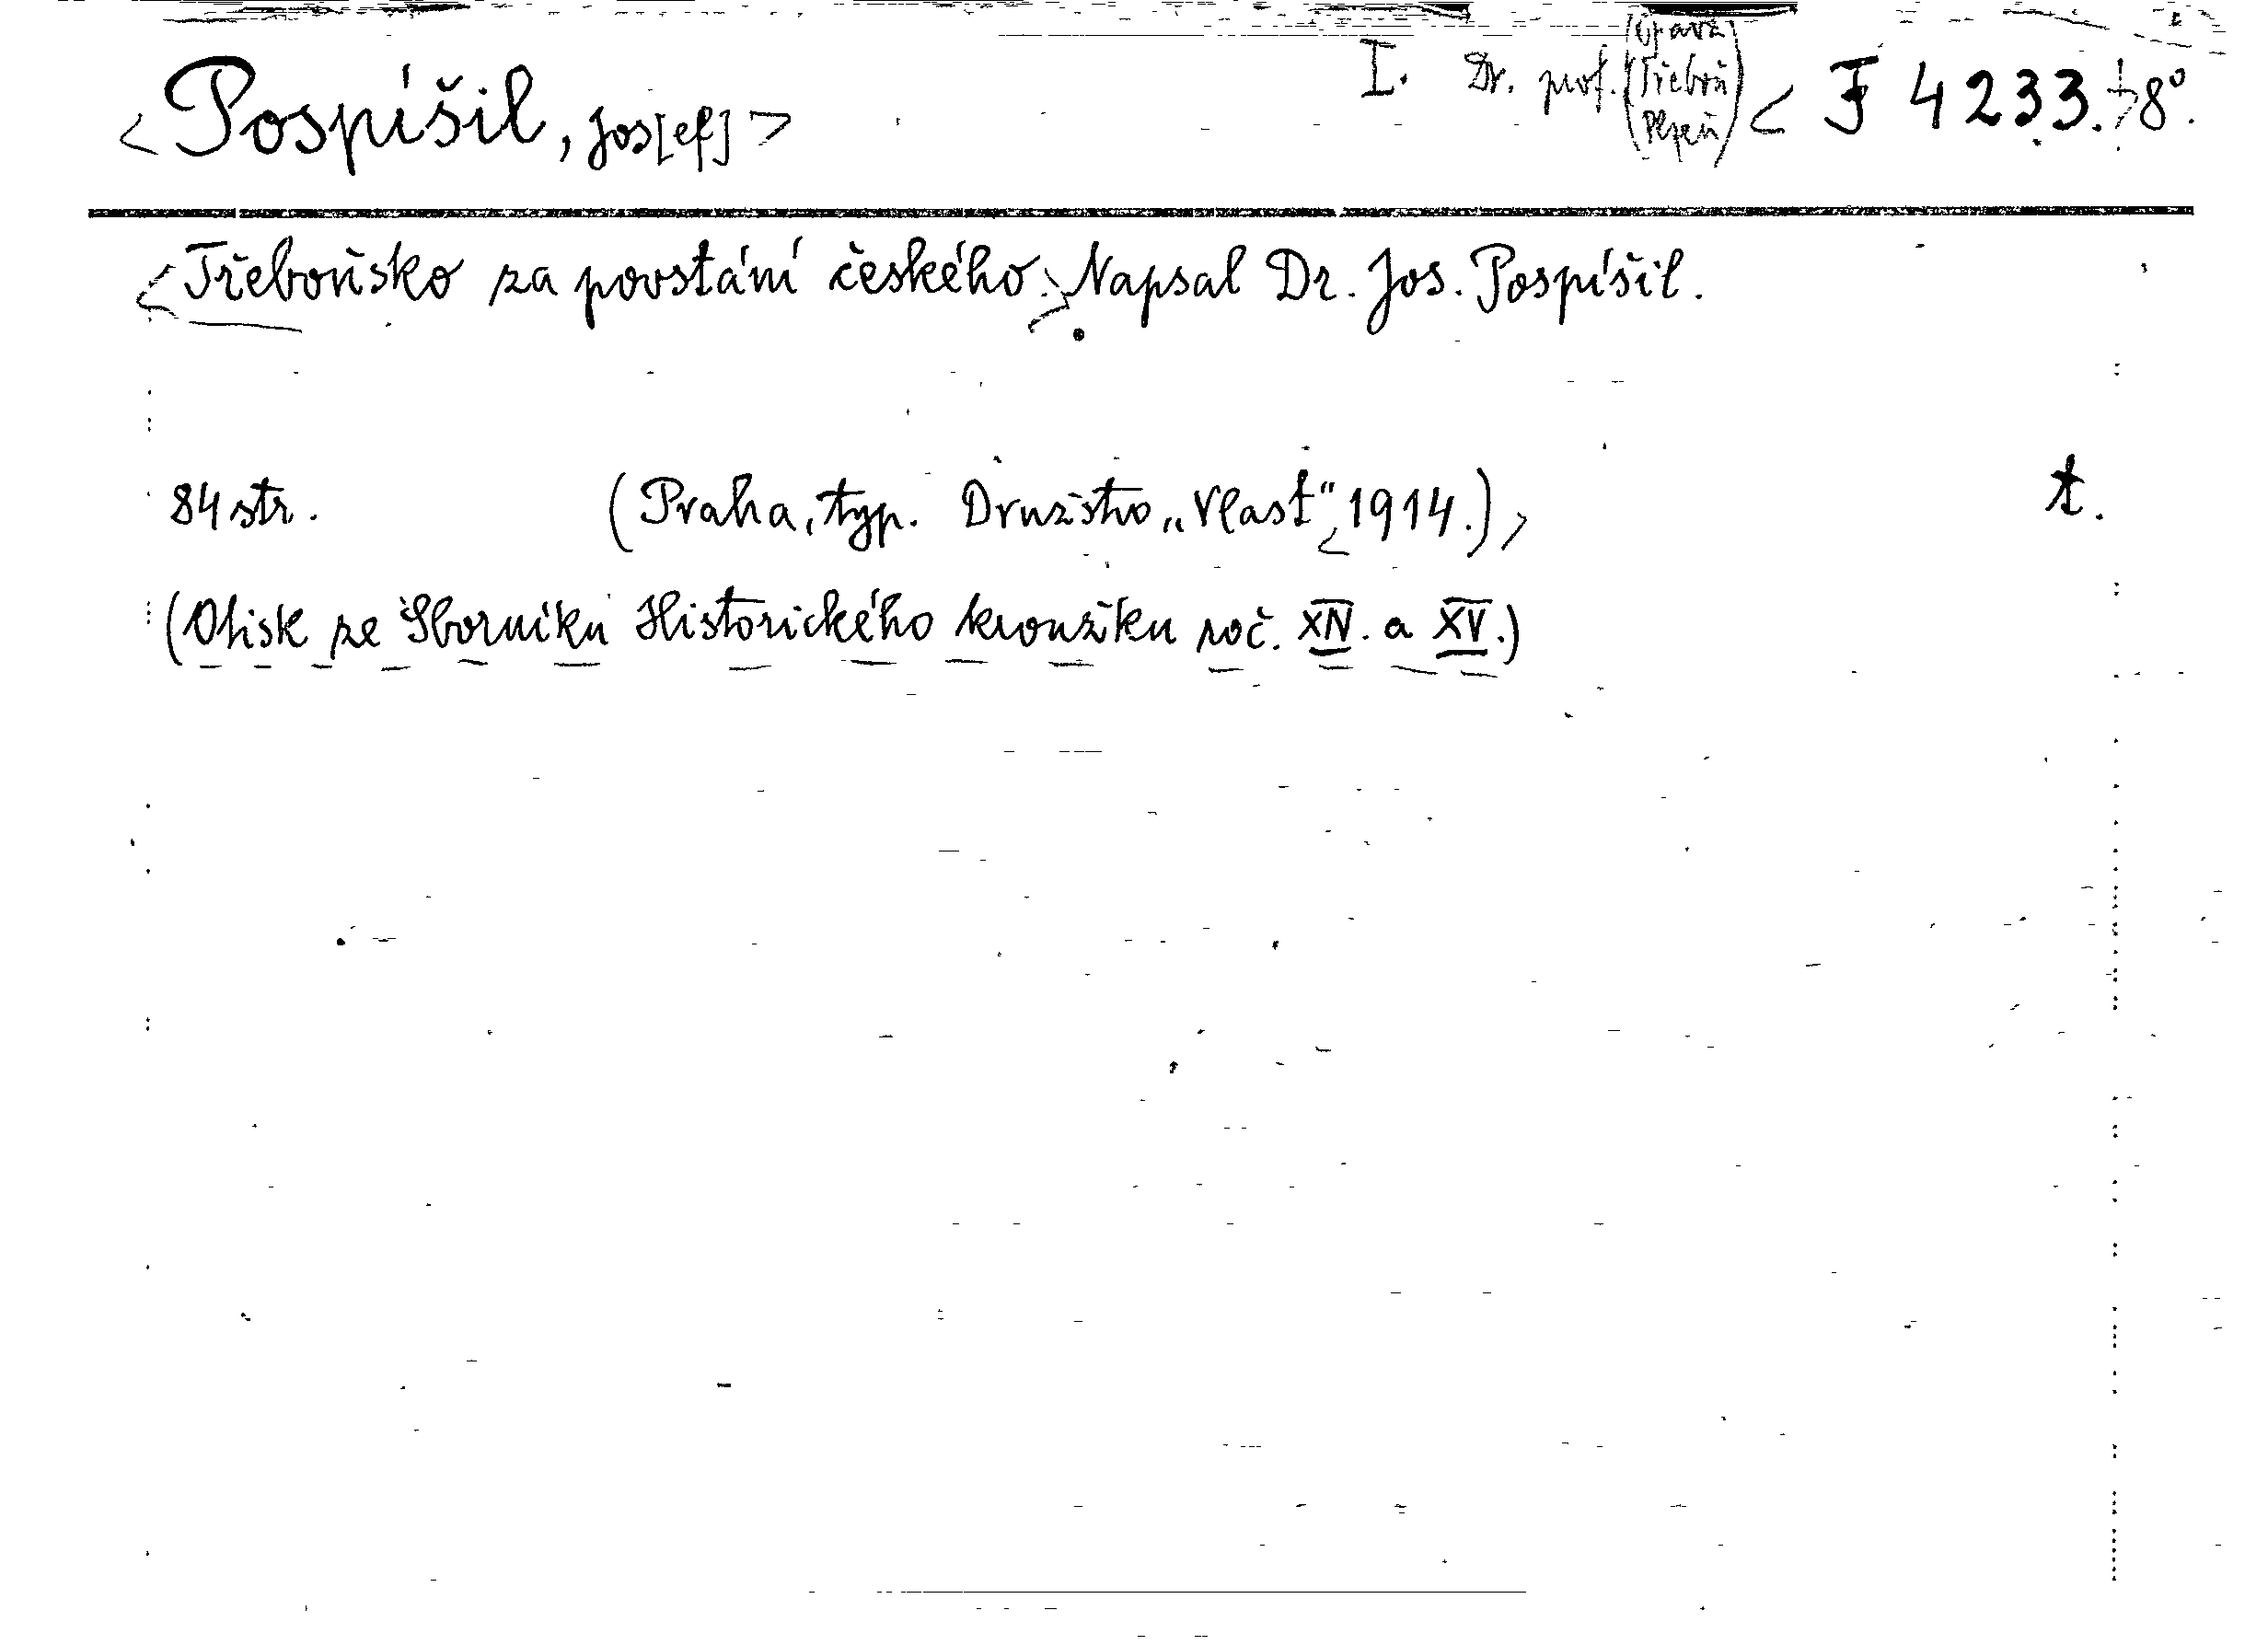 <Pospíšil, Jos[ef]> I. Dr. prof. (Opava) (Třeboň) (Plzeň) < F 4233.> 8°.
<Třeboňsko za povstání českého.> Napsal Dr. Jos. Pospíšil.
84 str. (Praha, typ. Družstvo „Vlast“ <1914.)> t.
(Otisk ze Sborníku Historického kroužku roč. XIV. a XV.)